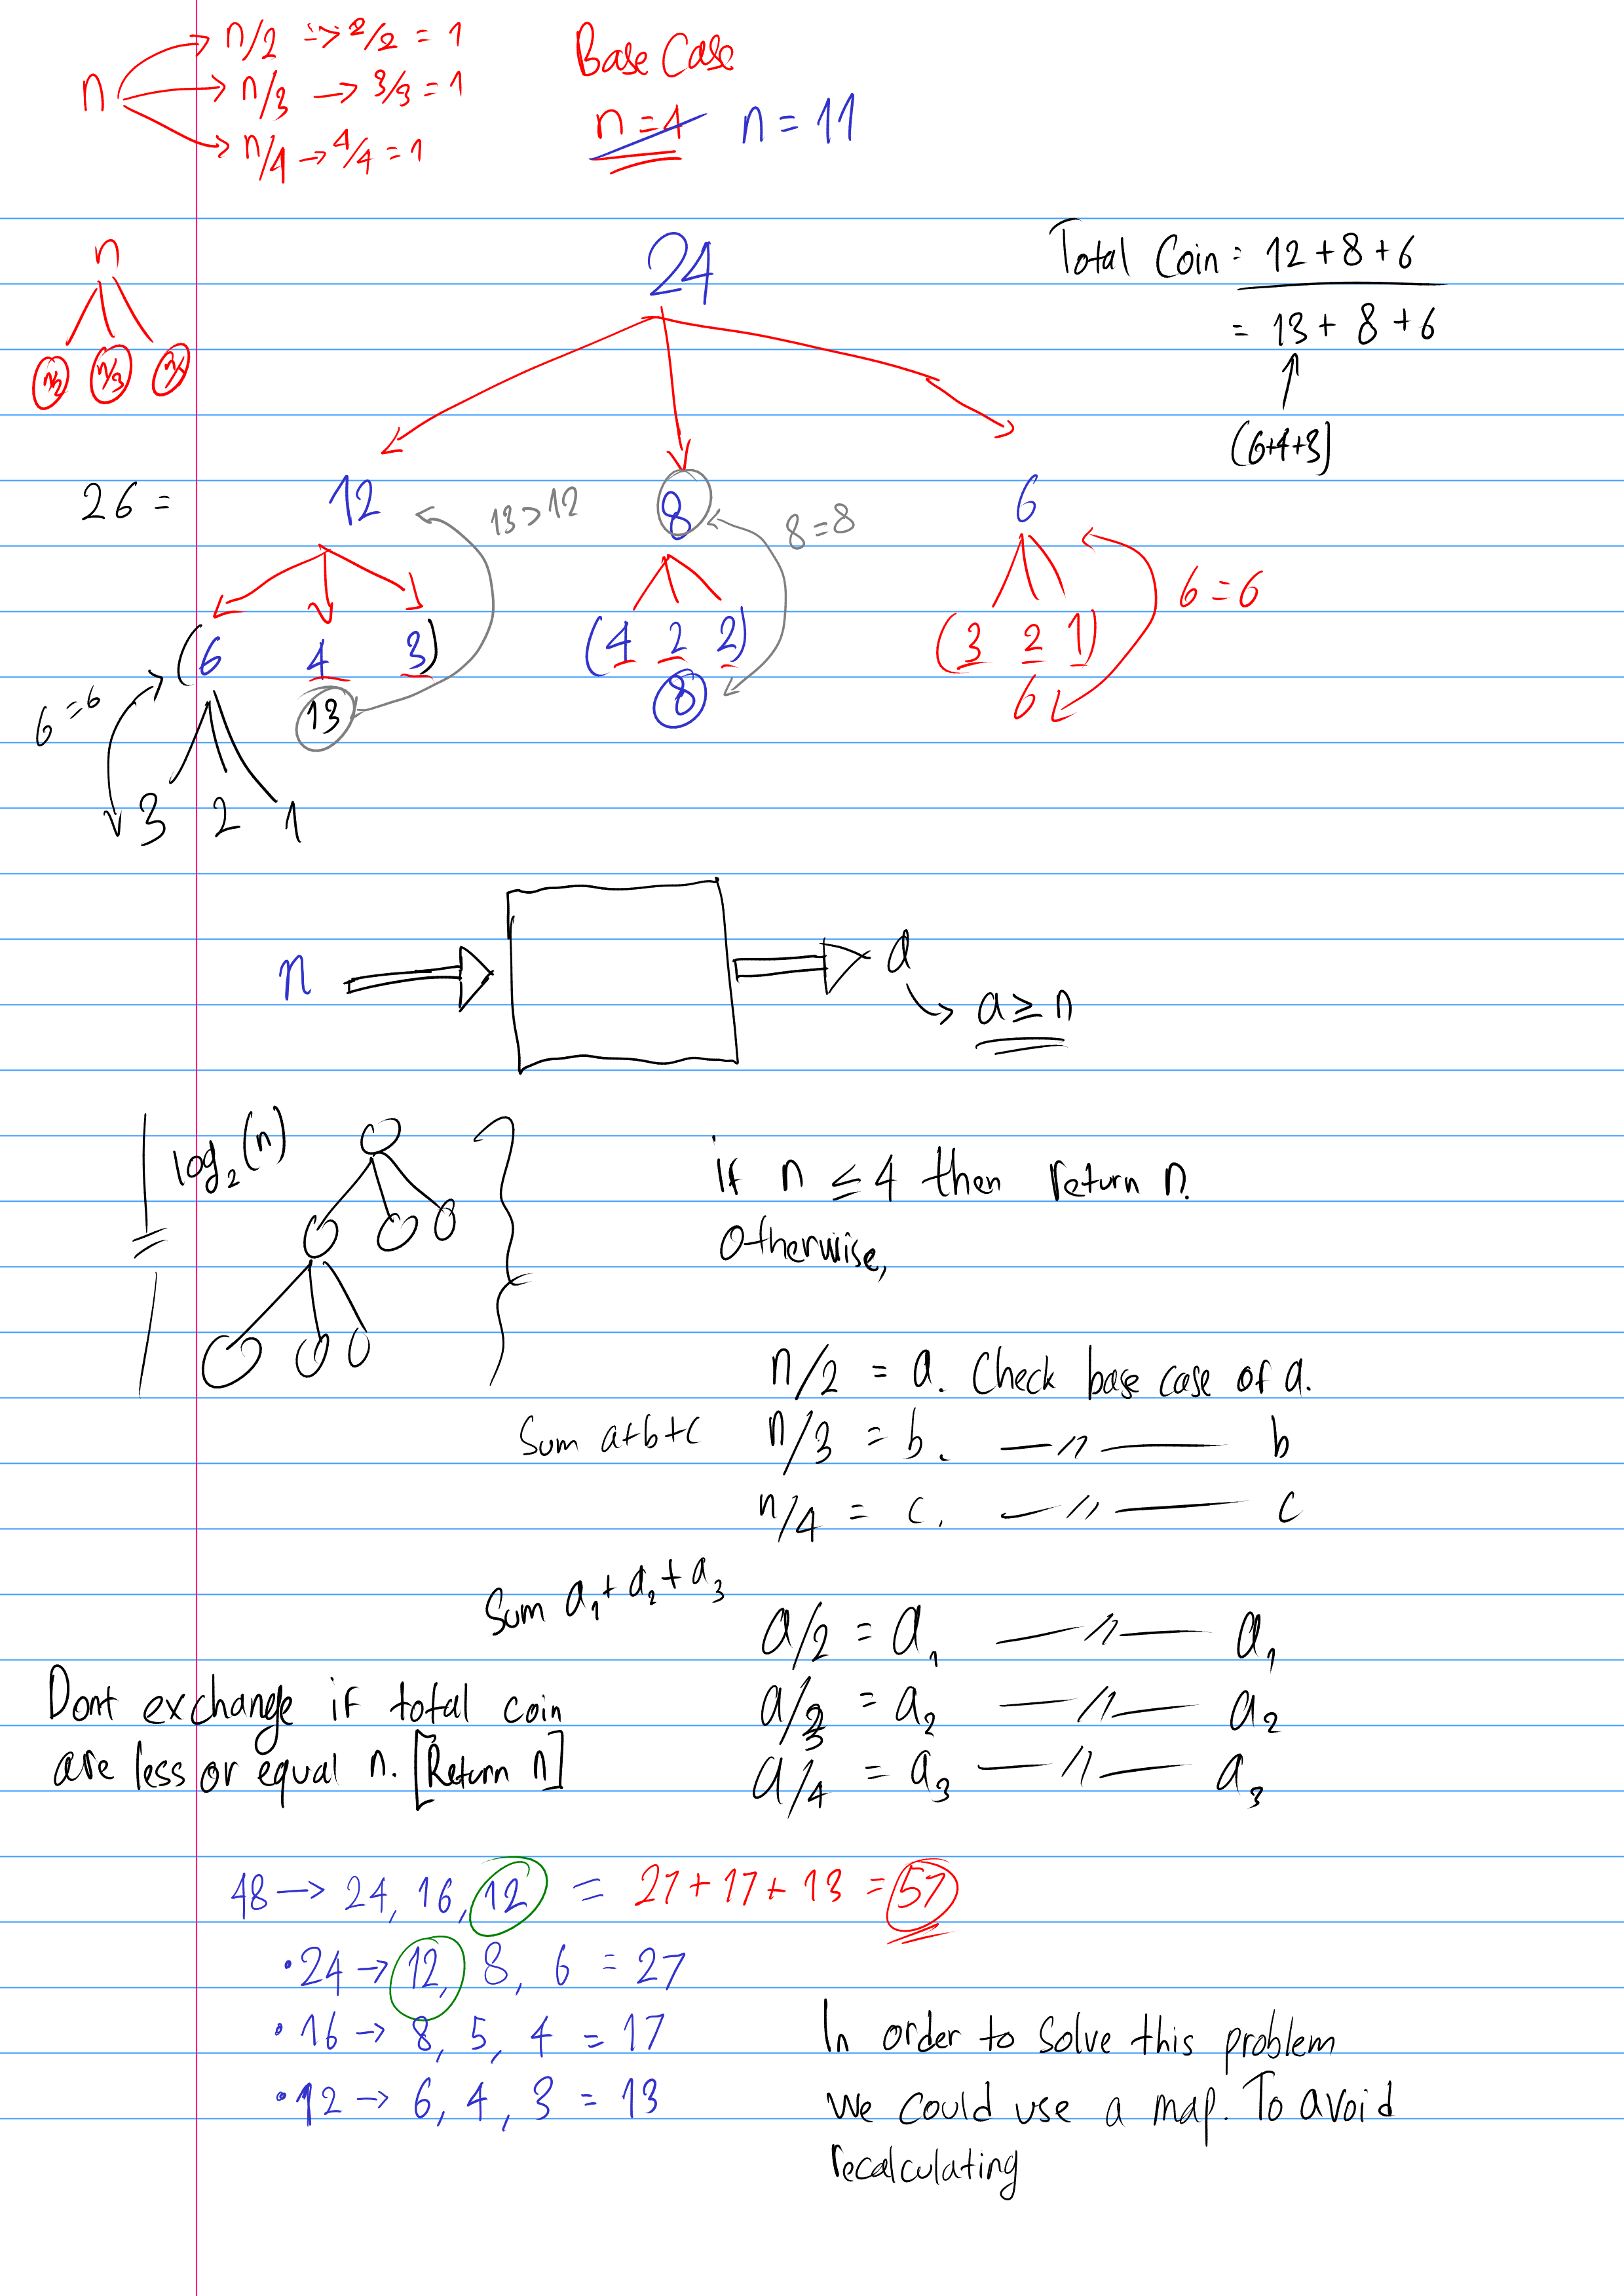 n
n/2 -> 2/2 = 1
n/3 -> 3/3 = 1
n/4 -> 4/4 = 1
Base Case
n = 4 n = 11
n
n/2 n/3 n/4
24
Total Coin = 12 + 8 + 6
= 13 + 8 + 6
(6+4+3)
26 =
12 13 > 12 8 8 = 8 6
6 = 6
(6 4 3) (4 2 2) (3 2 1)
13 8 6
6 = 6
3 2 1
n a
a ≥ n
log₂(n)
if n ≤ 4 then return n.
Otherwise,
n/2 = a. Check base case of a.
Sum a+b+c n/3 = b. — 〃 — b
n/4 = c. — 〃 — c
Sum a₁ + a₂ + a₃
a/2 = a₁ — 〃 — a₁
a/3 = a₂ — 〃 — a₂
a/4 = a₃ — 〃 — a₃
Dont exchange if total coin
are less or equal n. [Return n]
48 -> 24, 16, 12 = 27 + 17 + 13 = 57
• 24 -> 12, 8, 6 = 27
• 16 -> 8, 5, 4 = 17
• 12 -> 6, 4, 3 = 13
In order to solve this problem
we could use a map. To avoid
recalculating